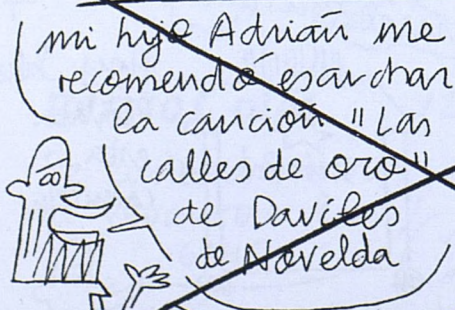 mi hijo Adrián me
recomendó escuchar
la canción "Las
calles de oro"
de Daviles
de Novelda